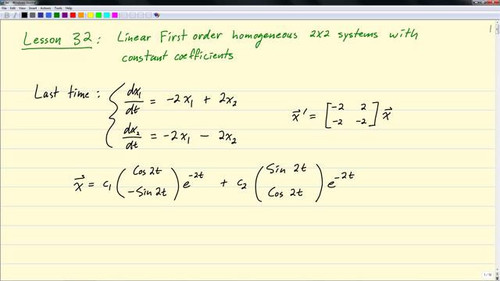 1
Lesson 32: Linear First order homogeneous 2x2 systems with
constant coefficients
Last time: { dx₁/dt = -2x₁ + 2x₂
dx₂/dt = -2x₁ - 2x₂
x⃗' = [-2 2; -2 -2] x⃗
x⃗ = c₁ (Cos 2t; -Sin 2t) e^-2t + c₂ (Sin 2t; Cos 2t) e^-2t